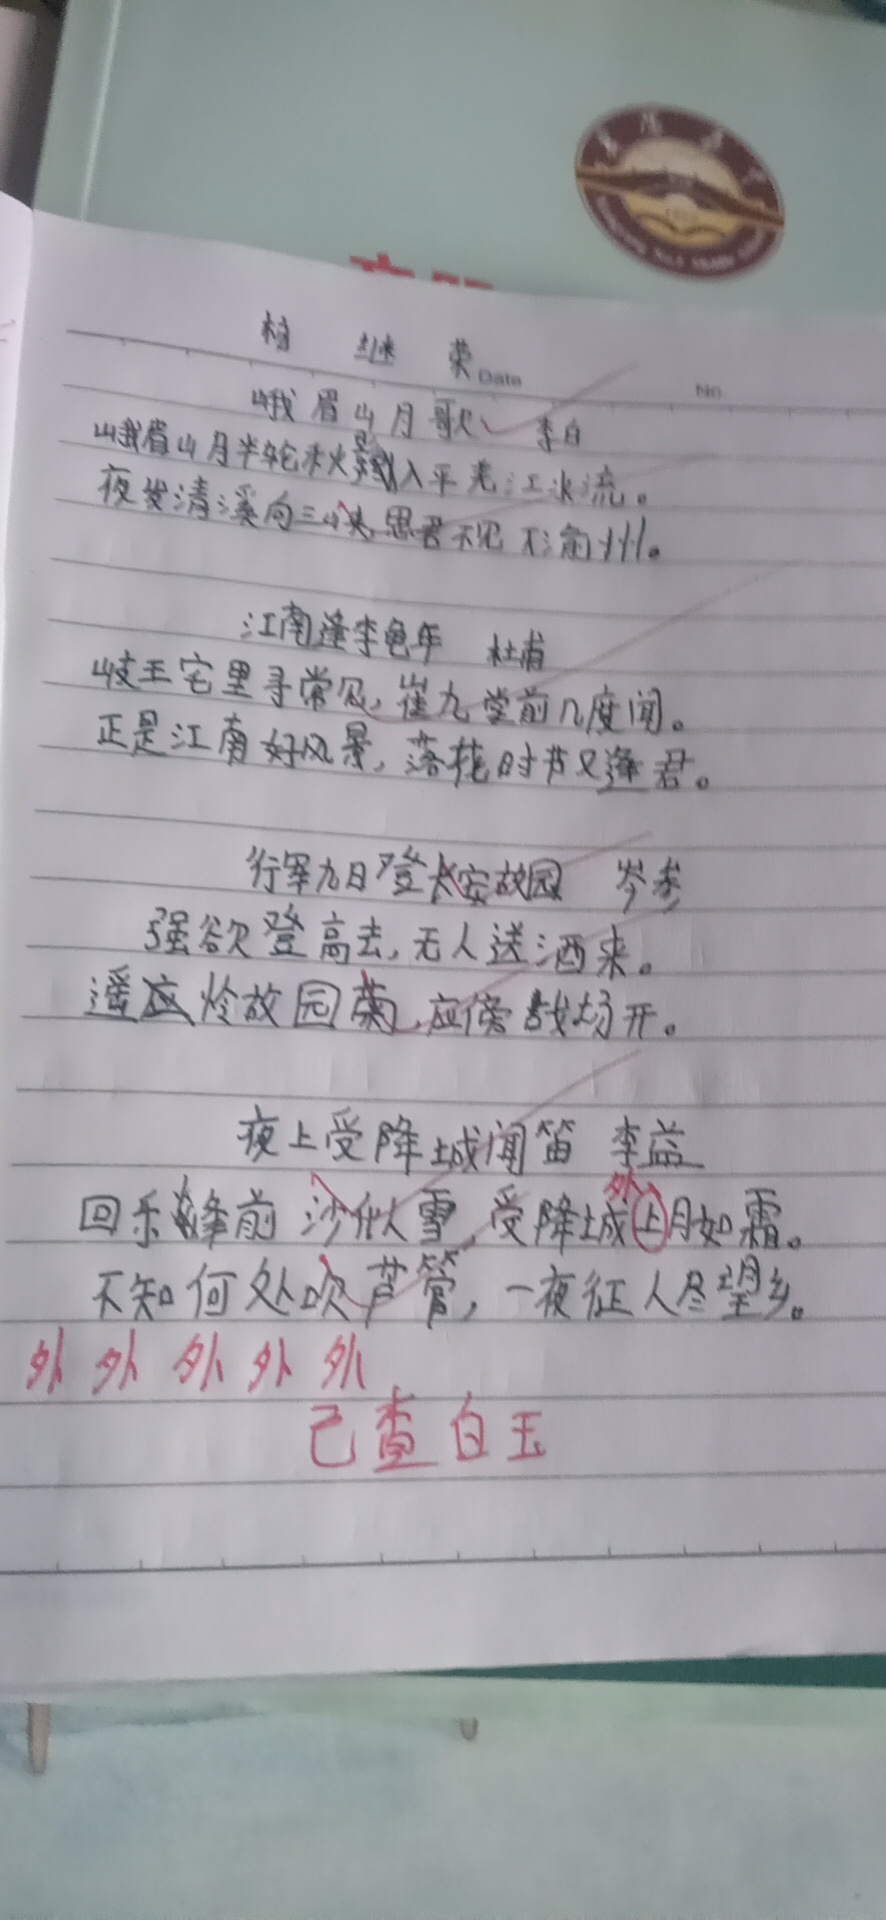 柏 继 荣
Date No.
峨眉山月歌 李白
峨眉山月半轮秋,影入平羌江水流。
夜发清溪向三峡,思君不见下渝州。
江南逢李龟年 杜甫
岐王宅里寻常见,崔九堂前几度闻。
正是江南好风景,落花时节又逢君。
行军九日登长安故园 岑参
强欲登高去,无人送酒来。
遥怜故园菊,应傍战场开。
夜上受降城闻笛 李益
外
回乐峰前沙似雪,受降城上月如霜。
不知何处吹芦管,一夜征人尽望乡。
外 外 外 外 外
已查白玉